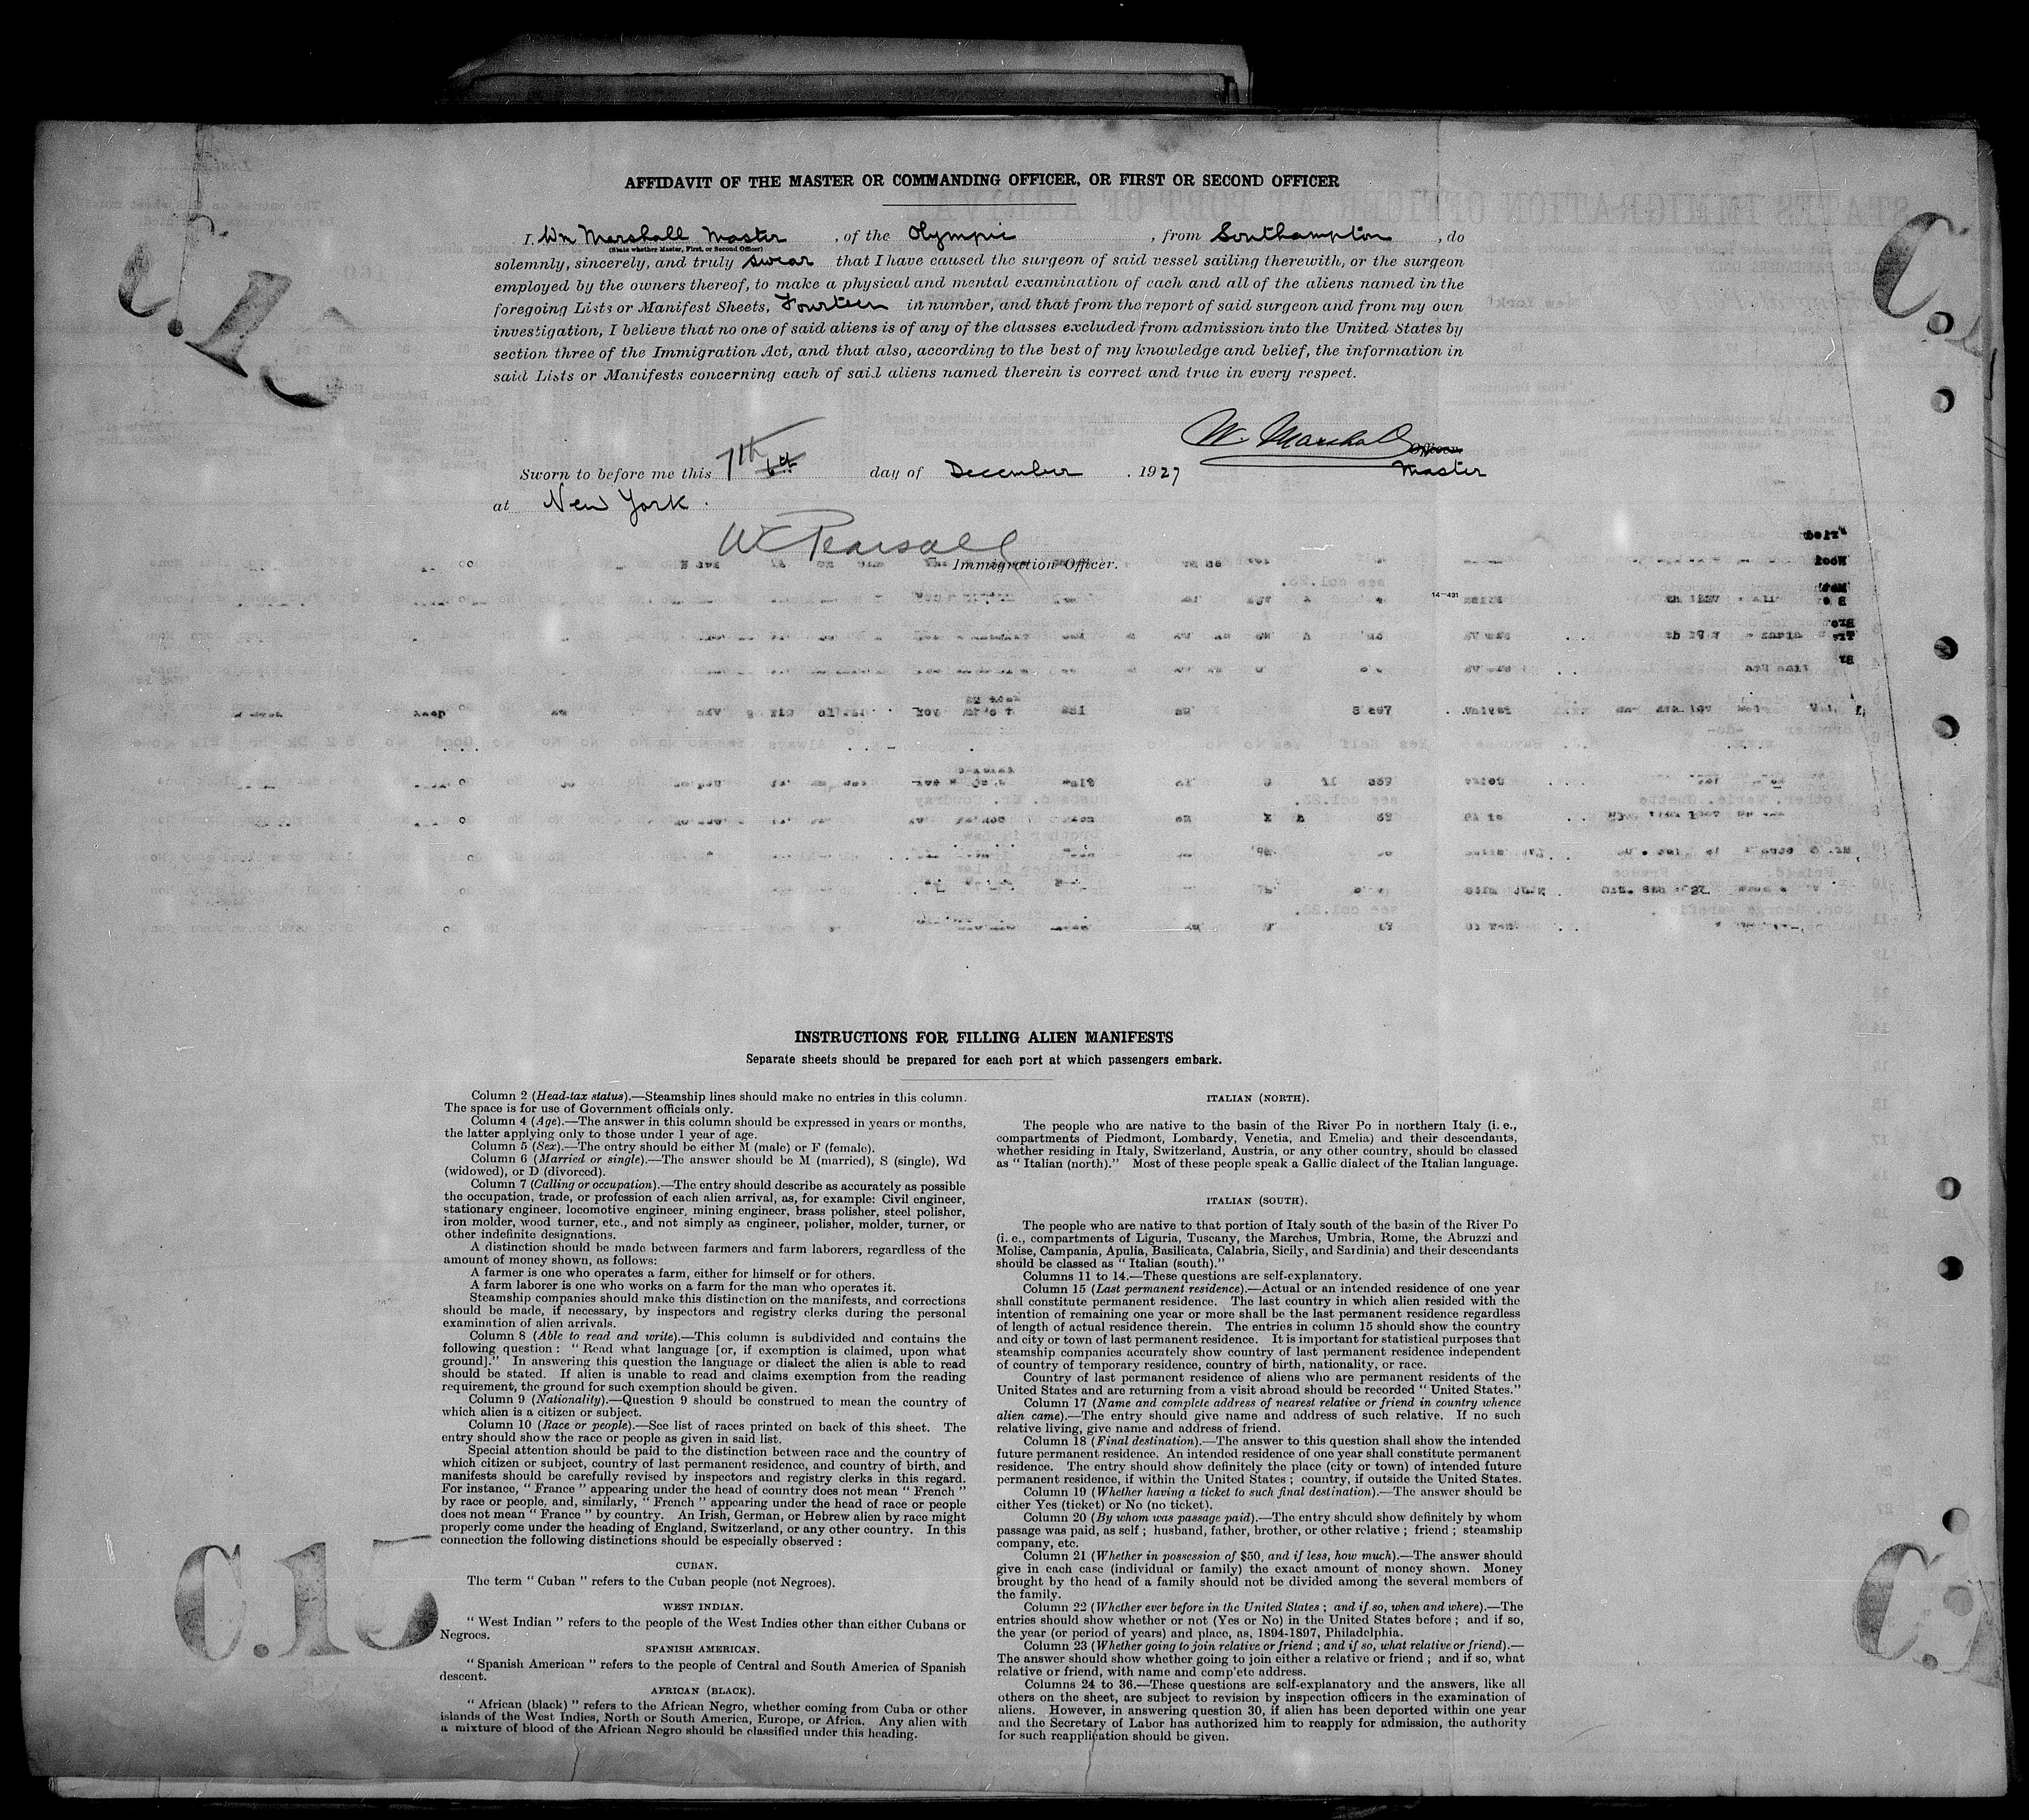 AFFIDAVIT OF THE MASTER OR COMMANDING OFFICER, OR FIRST OR SECOND OFFICER
I, Wm Marshall Master, of the Olympic, from Southampton, do
(State whether Master, First, or Second Officer)
solemnly, sincerely, and truly swear that I have caused the surgeon of said vessel sailing therewith, or the surgeon
employed by the owners thereof, to make a physical and mental examination of each and all of the aliens named in the
foregoing Lists or Manifest Sheets, Fourteen in number, and that from the report of said surgeon and from my own
investigation, I believe that no one of said aliens is of any of the classes excluded from admission into the United States by
section three of the Immigration Act, and that also, according to the best of my knowledge and belief, the information in
said Lists or Manifests concerning each of said aliens named therein is correct and true in every respect.
W. Marshall Officer.
Sworn to before me this 7th 6th day of December, 1927 Master
at New York.
W C Pearsall
Immigration Officer.
14—431
INSTRUCTIONS FOR FILLING ALIEN MANIFESTS
Separate sheets should be prepared for each port at which passengers embark.
Column 2 (Head-tax status).—Steamship lines should make no entries in this column.
The space is for use of Government officials only.
Column 4 (Age).—The answer in this column should be expressed in years or months,
the latter applying only to those under 1 year of age.
Column 5 (Sex).—The entry should be either M (male) or F (female).
Column 6 (Married or single).—The answer should be M (married), S (single), Wd
(widowed), or D (divorced).
Column 7 (Calling or occupation).—The entry should describe as accurately as possible
the occupation, trade, or profession of each alien arrival, as, for example: Civil engineer,
stationary engineer, locomotive engineer, mining engineer, brass polisher, steel polisher,
iron molder, wood turner, etc., and not simply as engineer, polisher, molder, turner, or
other indefinite designations.
A distinction should be made between farmers and farm laborers, regardless of the
amount of money shown, as follows:
A farmer is one who operates a farm, either for himself or for others.
A farm laborer is one who works on a farm for the man who operates it.
Steamship companies should make this distinction on the manifests, and corrections
should be made, if necessary, by inspectors and registry clerks during the personal
examination of alien arrivals.
Column 8 (Able to read and write).—This column is subdivided and contains the
following question: "Read what language [or, if exemption is claimed, upon what
ground]." In answering this question the language or dialect the alien is able to read
should be stated. If alien is unable to read and claims exemption from the reading
requirement, the ground for such exemption should be given.
Column 9 (Nationality).—Question 9 should be construed to mean the country of
which alien is a citizen or subject.
Column 10 (Race or people).—See list of races printed on back of this sheet. The
entry should show the race or people as given in said list.
Special attention should be paid to the distinction between race and the country of
which citizen or subject, country of last permanent residence, and country of birth, and
manifests should be carefully revised by inspectors and registry clerks in this regard.
For instance, "France" appearing under the head of country does not mean "French"
by race or people, and, similarly, "French" appearing under the head of race or people
does not mean "France" by country. An Irish, German, or Hebrew alien by race might
properly come under the heading of England, Switzerland, or any other country. In this
connection the following distinctions should be especially observed:
CUBAN.
The term "Cuban" refers to the Cuban people (not Negroes).
WEST INDIAN.
"West Indian" refers to the people of the West Indies other than either Cubans or
Negroes.
SPANISH AMERICAN.
"Spanish American" refers to the people of Central and South America of Spanish
descent.
AFRICAN (BLACK).
"African (black)" refers to the African Negro, whether coming from Cuba or other
islands of the West Indies, North or South America, Europe, or Africa. Any alien with
a mixture of blood of the African Negro should be classified under this heading.
ITALIAN (NORTH).
The people who are native to the basin of the River Po in northern Italy (i. e.,
compartments of Piedmont, Lombardy, Venetia, and Emelia) and their descendants,
whether residing in Italy, Switzerland, Austria, or any other country, should be classed
as "Italian (north)." Most of these people speak a Gallic dialect of the Italian language.
ITALIAN (SOUTH).
The people who are native to that portion of Italy south of the basin of the River Po
(i. e., compartments of Liguria, Tuscany, the Marches, Umbria, Rome, the Abruzzi and
Molise, Campania, Apulia, Basilicata, Calabria, Sicily, and Sardinia) and their descendants
should be classed as "Italian (south)."
Columns 11 to 14.—These questions are self-explanatory.
Column 15 (Last permanent residence).—Actual or an intended residence of one year
shall constitute permanent residence. The last country in which alien resided with the
intention of remaining one year or more shall be the last permanent residence regardless
of length of actual residence therein. The entries in column 15 should show the country
and city or town of last permanent residence. It is important for statistical purposes that
steamship companies accurately show country of last permanent residence independent
of country of temporary residence, country of birth, nationality, or race.
Country of last permanent residence of aliens who are permanent residents of the
United States and are returning from a visit abroad should be recorded "United States."
Column 17 (Name and complete address of nearest relative or friend in country whence
alien came).—The entry should give name and address of such relative. If no such
relative living, give name and address of friend.
Column 18 (Final destination).—The answer to this question shall show the intended
future permanent residence. An intended residence of one year shall constitute permanent
residence. The entry should show definitely the place (city or town) of intended future
permanent residence, if within the United States; country, if outside the United States.
Column 19 (Whether having a ticket to such final destination).—The answer should be
either Yes (ticket) or No (no ticket).
Column 20 (By whom was passage paid).—The entry should show definitely by whom
passage was paid, as self; husband, father, brother, or other relative; friend; steamship
company, etc.
Column 21 (Whether in possession of $50, and if less, how much).—The answer should
give in each case (individual or family) the exact amount of money shown. Money
brought by the head of a family should not be divided among the several members of
the family.
Column 22 (Whether ever before in the United States; and if so, when and where).—The
entries should show whether or not (Yes or No) in the United States before; and if so,
the year (or period of years) and place, as, 1894-1897, Philadelphia.
Column 23 (Whether going to join relative or friend; and if so, what relative or friend).—
The answer should show whether going to join either a relative or friend; and if so, what
relative or friend, with name and complete address.
Columns 24 to 36.—These questions are self-explanatory and the answers, like all
others on the sheet, are subject to revision by inspection officers in the examination of
aliens. However, in answering question 30, if alien has been deported within one year
and the Secretary of Labor has authorized him to reapply for admission, the authority
for such reapplication should be given.
C.15